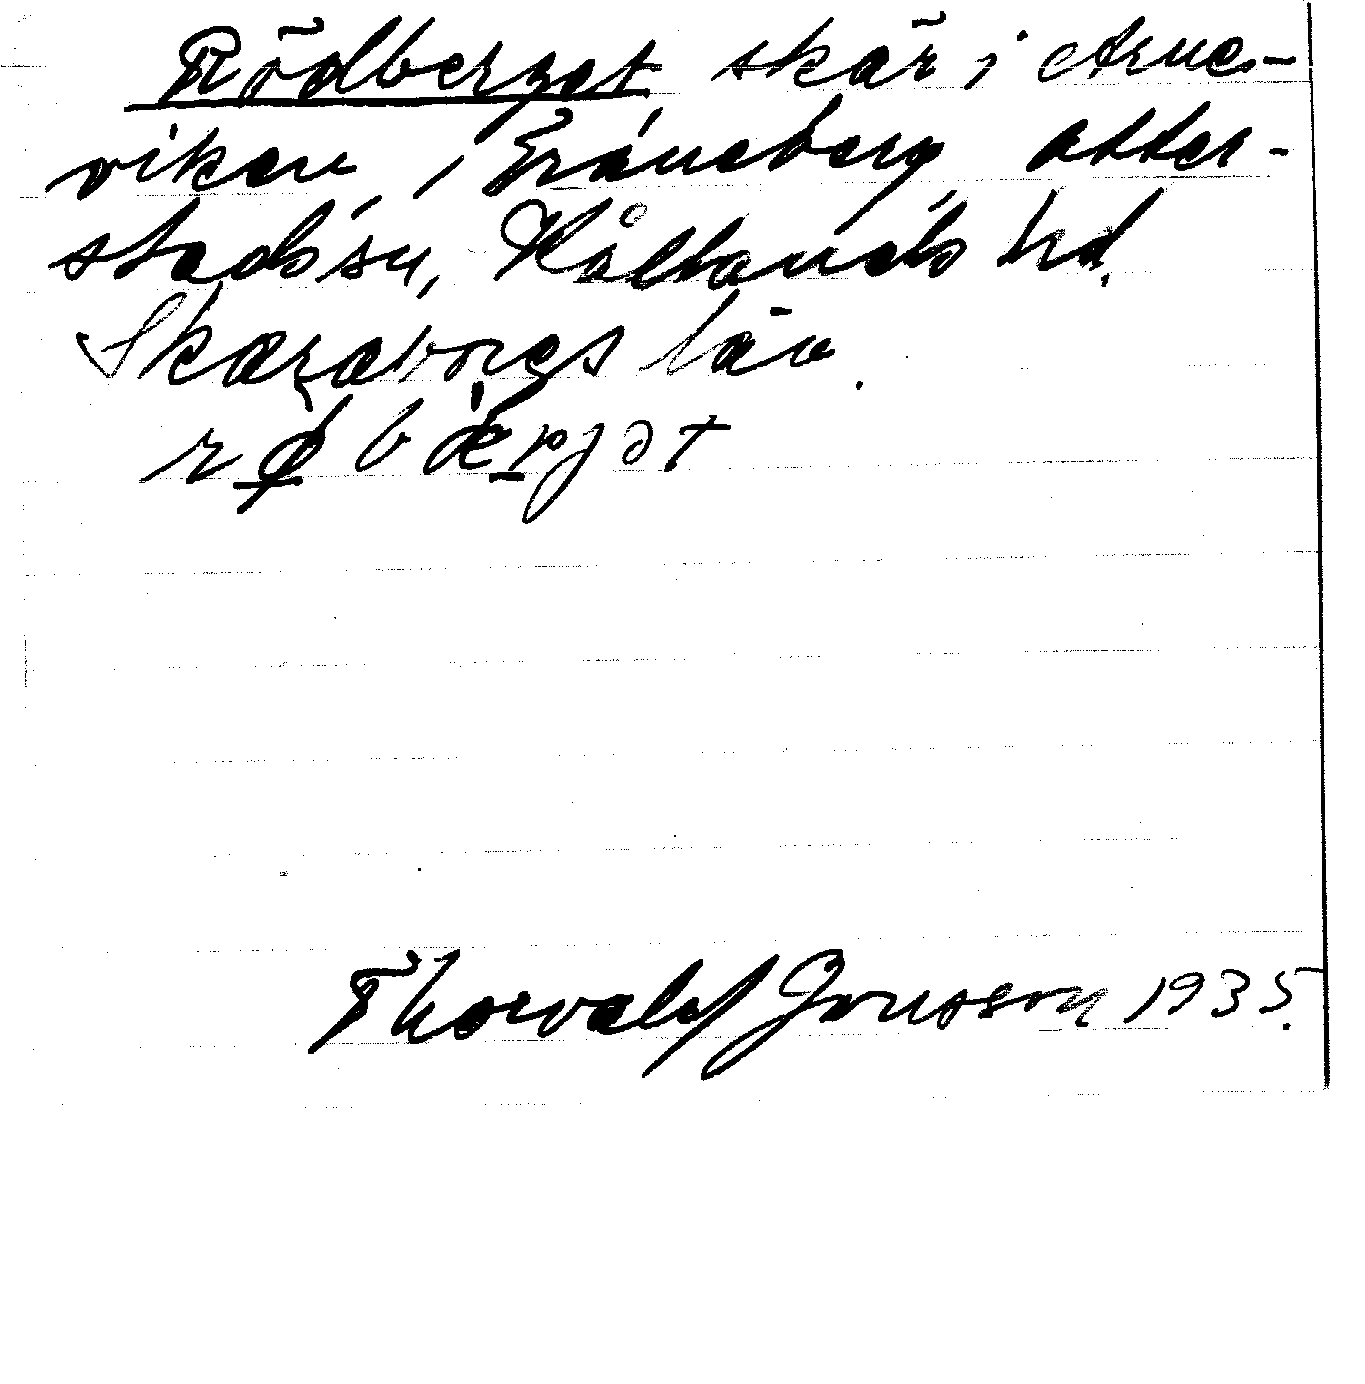 Rödberget skär i Arne-
viken, Tråneberg, Otter-
stads sn, Kållands hd.
Skaraborgs län.
rø̀bæ̀rjət
Thorvald Jonsson 1935.